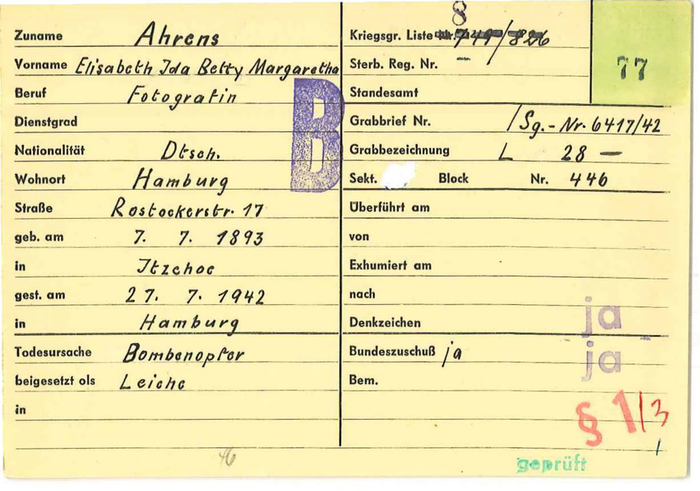 Zuname Ahrens
Vorname Elisabeth Ida Betty Margaretha
Beruf Fotografin
Dienstgrad
Nationalität Dtsch.
Wohnort Hamburg
Straße Rostockerstr. 17
geb. am 7. 7. 1893
in Itzehoe
gest. am 27. 7. 1942
in Hamburg
Todesursache Bombenopfer
beigesetzt als Leiche
in
46
B
8
Kriegsgr. Liste Nr. /826
77
Sterb. Reg. Nr. –
Standesamt
Grabbrief Nr. /Sg.-Nr. 6417/42
Grabbezeichnung L 28 –
Sekt. Block Nr. 446
Überführt am
von
Exhumiert am
nach
Denkzeichen ja
Bundeszuschuß ja ja
Bem.
§ 1/3
geprüft